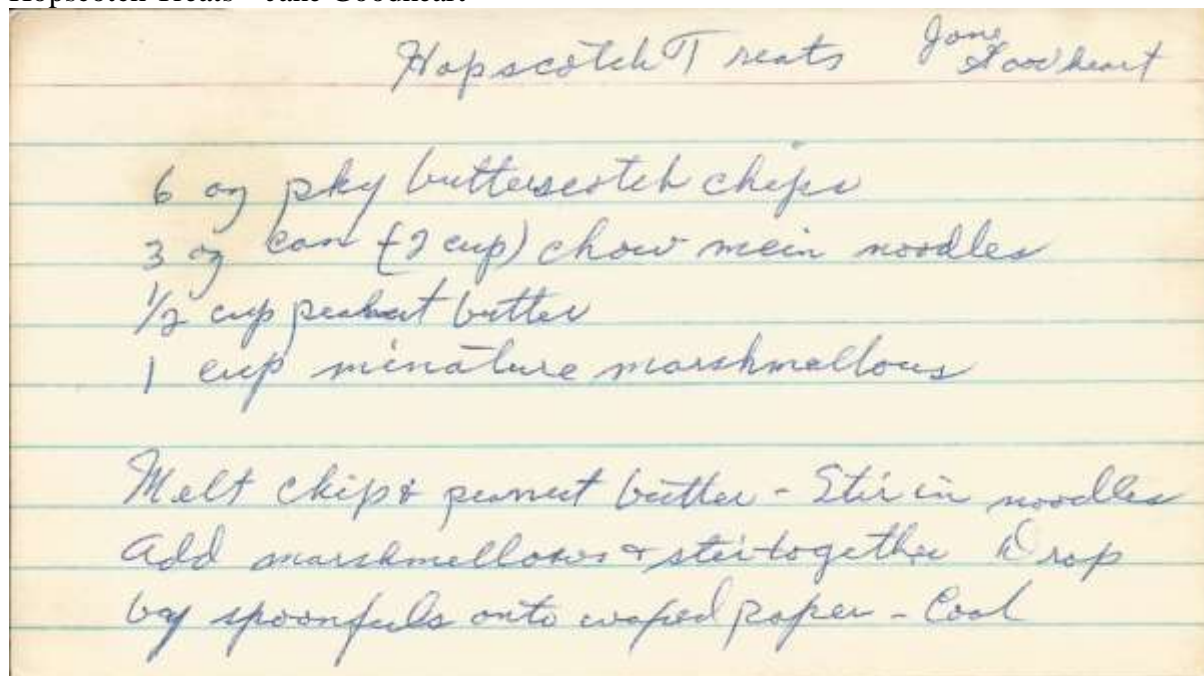 Hopscotch Treats Jane Goodheart
6 oz pkg butterscotch chips
3 oz can (2 cup) chow mein noodles
1/2 cup peanut butter
1 cup minature marshmellows
Melt chips & peanut butter - Stir in noodles
Add marshmellows & stir together Drop
by spoonfuls onto waxed paper - Cool